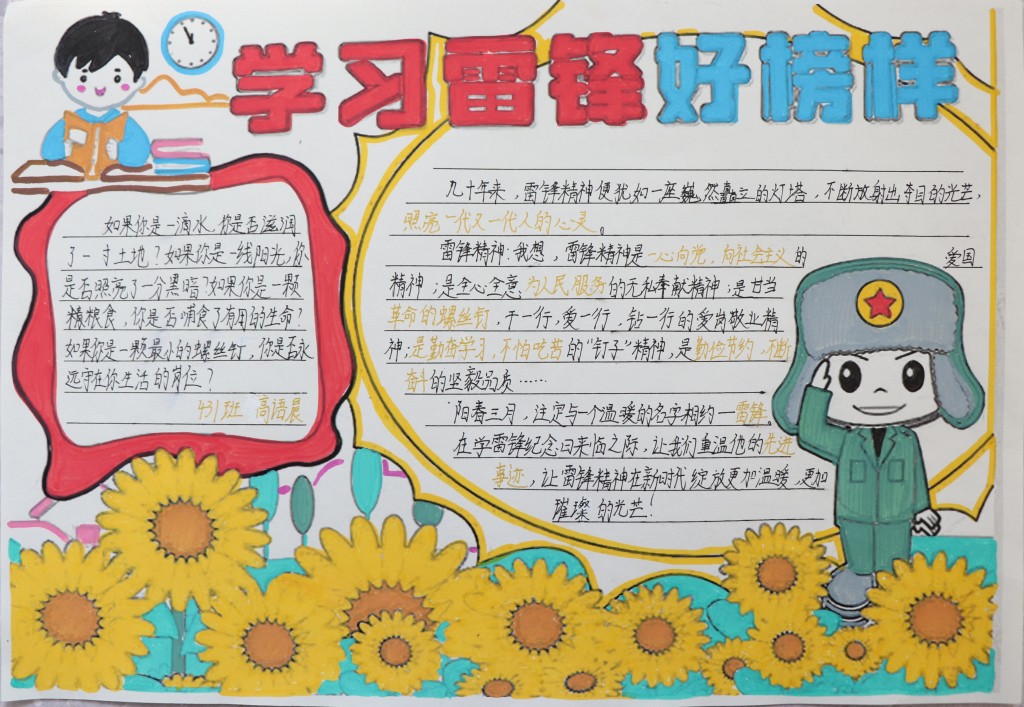 学习雷锋好榜样
如果你是一滴水,你是否滋润
了一寸土地?如果你是一线阳光,你
是否照亮了一分黑暗?如果你是一颗
粮粮食,你是否哺食了有用的生命?
如果你是一颗最小的螺丝钉,你是否永
远守在你生活的岗位?
431班 高语晨
几十年来,雷锋精神便犹如一座巍然矗立的灯塔,不断放射出夺目的光芒,
照亮一代又一代人的心灵。
雷锋精神:我想,雷锋精神是一心向党,向社会主义的 爱国
精神;是全心全意为人民服务的无私奉献精神;是甘当
革命的螺丝钉,干一行,爱一行,钻一行的爱岗敬业精
神;是勤奋学习,不怕吃苦的“钉子”精神,是勤俭节约,不断
奋斗的坚毅品质……
阳春三月,注定与一个温暖的名字相约—雷锋。
在学雷锋纪念日来临之际,让我们重温他的先进
事迹,让雷锋精神在新时代绽放更加温暖,更加
璀璨的光芒!